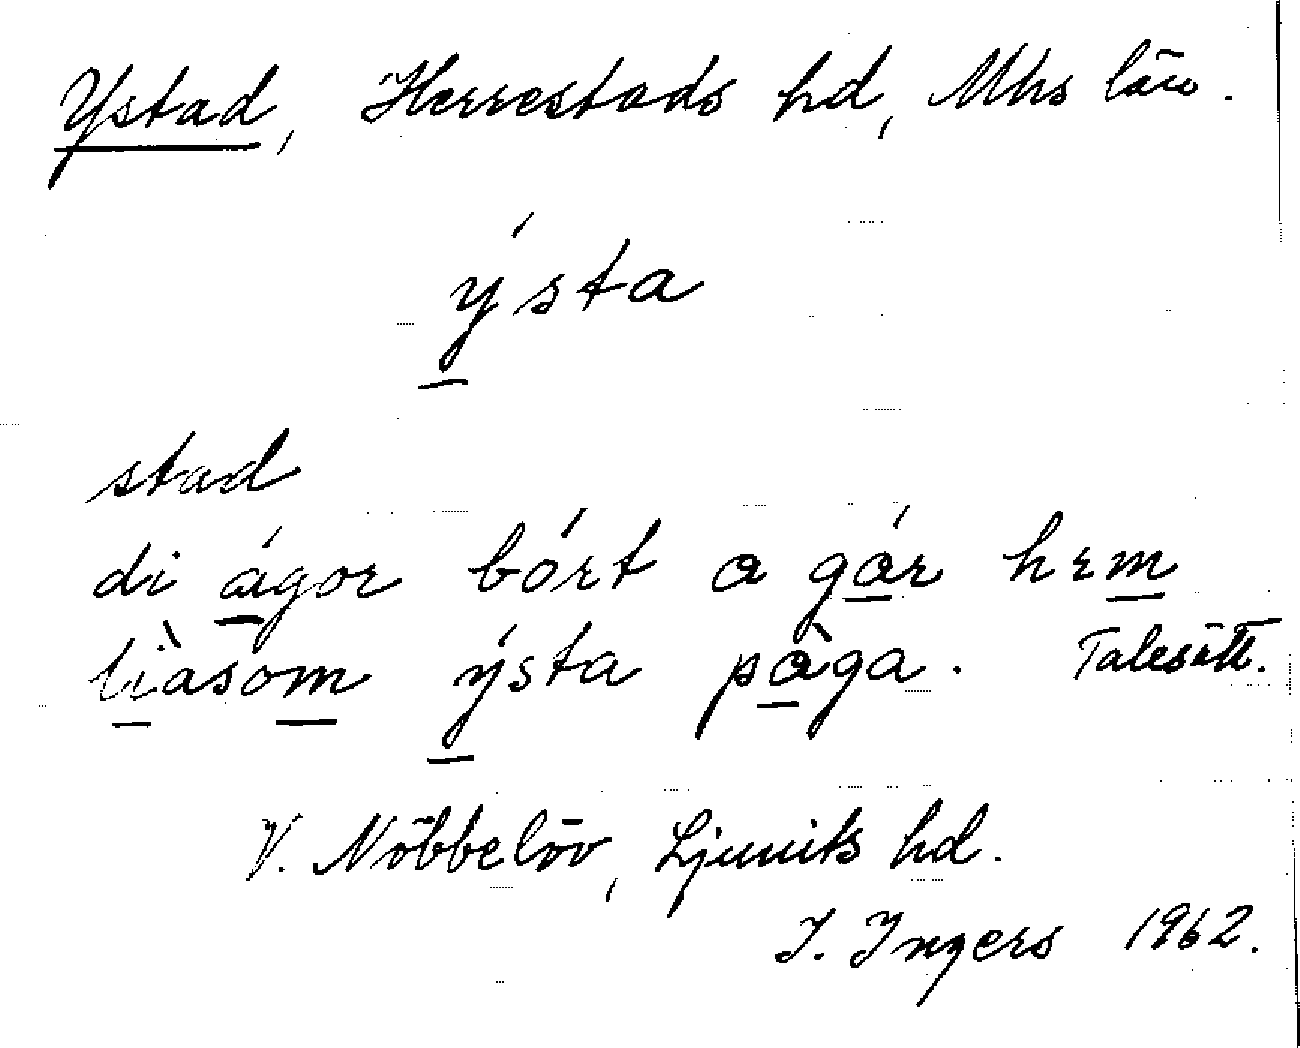 Ystad, Herrestads hd, Mhs län.
ýsta
stad
di ágor bórt a gár hem
lìasom ýsta pàga. Talesätt.
V. Nöbbelöv, Ljunits hd.
I. Ingers 1962.